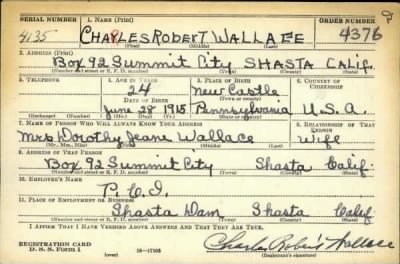 SERIAL NUMBER 1. NAME (Print) ORDER NUMBER
4135 CHARLES ROBERT WALLACE 4376
(First) (Middle) (Last)
2. ADDRESS (Print)
Box 92 Summit City SHASTA CALIF.
(Number and street or R. F. D. number) (Town) (County) (State)
3. TELEPHONE 4. AGE IN YEARS 5. PLACE OF BIRTH 6. COUNTRY OF CITIZENSHIP
24 New Castle
DATE OF BIRTH (Town or county)
June 28 1915 Pennsylvania U.S.A.
(Exchange) (Number) (Mo.) (Day) (Yr.) (State or country)
7. NAME OF PERSON WHO WILL ALWAYS KNOW YOUR ADDRESS 8. RELATIONSHIP OF THAT PERSON
Mrs Dorothy Jeane Wallace Wife
(Mr., Mrs., Miss) (First) (Middle) (Last)
9. ADDRESS OF THAT PERSON
Box 92 Summit City Shasta Calif.
(Number and street or R. F. D. number) (Town) (County) (State)
10. EMPLOYER'S NAME
P.C.I.
11. PLACE OF EMPLOYMENT OR BUSINESS
Shasta Dam Shasta Calif
(Number and street or R. F. D. number) (Town) (County) (State)
I AFFIRM THAT I HAVE VERIFIED ABOVE ANSWERS AND THAT THEY ARE TRUE.
REGISTRATION CARD
D. S. S. Form 1 (over) Charles Robert Wallace
(Registrant's signature)